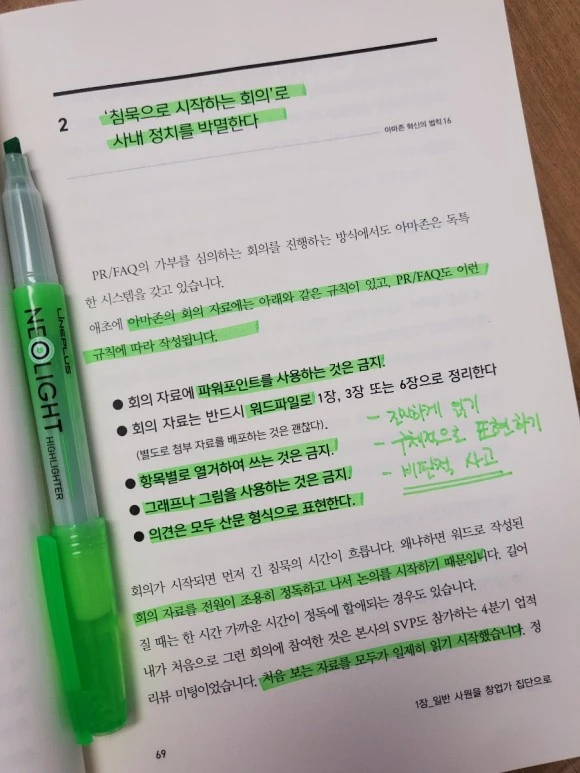 2
'침묵으로 시작하는 회의'로
사내 정치를 박멸한다
아마존 혁신의 법칙 16
PR/FAQ의 가부를 심의하는 회의를 진행하는 방식에서도 아마존은 독특
한 시스템을 갖고 있습니다.
애초에 아마존의 회의 자료에는 아래와 같은 규칙이 있고, PR/FAQ도 이런
규칙에 따라 작성됩니다.
● 회의 자료에 파워포인트를 사용하는 것은 금지.
● 회의 자료는 반드시 워드파일로 1장, 3장 또는 6장으로 정리한다
(별도로 첨부 자료를 배포하는 것은 괜찮다).
● 항목별로 열거하여 쓰는 것은 금지.
● 그래프나 그림을 사용하는 것은 금지.
● 의견은 모두 산문 형식으로 표현한다.
- 조밀하게 읽기
- 구체적으로 표현하기
- 비판적 사고
회의가 시작되면 먼저 긴 침묵의 시간이 흐릅니다. 왜냐하면 워드로 작성된
회의 자료를 전원이 조용히 정독하고 나서 논의를 시작하기 때문입니다. 길어
질 때는 한 시간 가까운 시간이 정독에 할애되는 경우도 있습니다.
내가 처음으로 그런 회의에 참여한 것은 본사의 SVP도 참가하는 4분기 업적
리뷰 미팅이었습니다. 처음 보는 자료를 모두가 일제히 읽기 시작했습니다. 정
1장_일반 사원을 창업가 집단으로
69
LINEPLUS
NEOLIGHT
HIGHLIGHTER